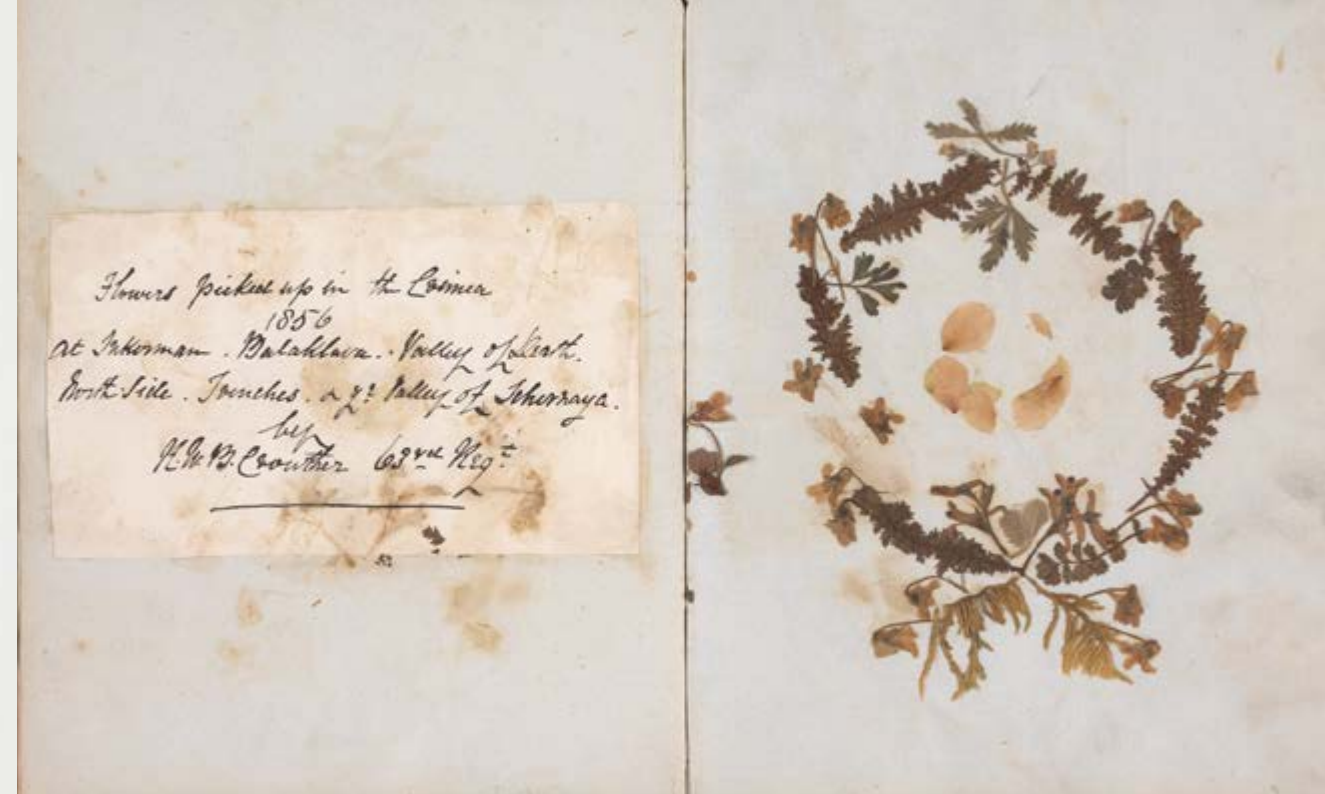 Flowers picked up in the Crimea
1856
at Inkerman . Balaklava . Valley of Death .
North Side . Trenches . & ye Valley of Tchernaya .
by
Crouther 63rd Regt